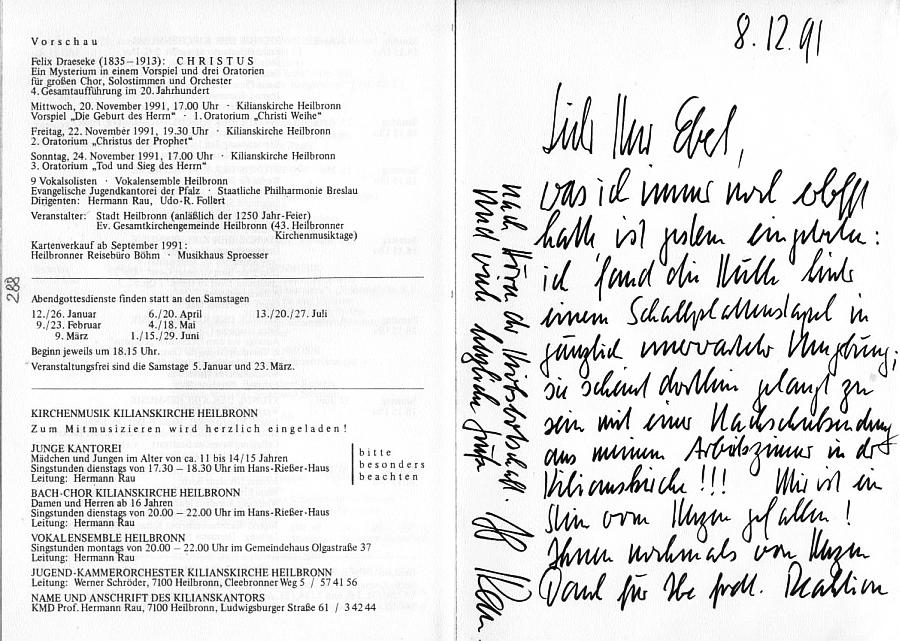 Vorschau
Felix Draeseke (1835–1913): CHRISTUS
Ein Mysterium in einem Vorspiel und drei Oratorien
für großen Chor, Solostimmen und Orchester
4. Gesamtaufführung im 20. Jahrhundert
Mittwoch, 20. November 1991, 17.00 Uhr · Kilianskirche Heilbronn
Vorspiel „Die Geburt des Herrn“ · 1. Oratorium „Christi Weihe“
Freitag, 22. November 1991, 19.30 Uhr · Kilianskirche Heilbronn
2. Oratorium „Christus der Prophet“
Sonntag, 24. November 1991, 17.00 Uhr · Kilianskirche Heilbronn
3. Oratorium „Tod und Sieg des Herrn“
9 Vokalsolisten · Vokalensemble Heilbronn
Evangelische Jugendkantorei der Pfalz · Staatliche Philharmonie Breslau
Dirigenten: Hermann Rau, Udo-R. Follert
Veranstalter: Stadt Heilbronn (anläßlich der 1250 Jahr-Feier)
Ev. Gesamtkirchengemeinde Heilbronn (43. Heilbronner
Kirchenmusiktage)
Kartenverkauf ab September 1991:
Heilbronner Reisebüro Böhm · Musikhaus Sproesser
288
Abendgottesdienste finden statt an den Samstagen
12./26. Januar 6./20. April 13./20./27. Juli
9./23. Februar 4./18. Mai
9. März 1./15./29. Juni
Beginn jeweils um 18.15 Uhr.
Veranstaltungsfrei sind die Samstage 5. Januar und 23. März.
KIRCHENMUSIK KILIANSKIRCHE HEILBRONN
Zum Mitmusizieren wird herzlich eingeladen!
JUNGE KANTOREI
Mädchen und Jungen im Alter von ca. 11 bis 14/15 Jahren
Singstunden dienstags von 17.30 – 18.30 Uhr im Hans-Rießer-Haus
Leitung: Hermann Rau
bitte
besonders
beachten
BACH-CHOR KILIANSKIRCHE HEILBRONN
Damen und Herren ab 16 Jahren
Singstunden dienstags von 20.00 – 22.00 Uhr im Hans-Rießer-Haus
Leitung: Hermann Rau
VOKALENSEMBLE HEILBRONN
Singstunden montags von 20.00 – 22.00 Uhr im Gemeindehaus Olgastraße 37
Leitung: Hermann Rau
JUGEND-KAMMERORCHESTER KILIANSKIRCHE HEILBRONN
Leitung: Werner Schröder, 7100 Heilbronn, Cleebronner Weg 5 / 57 41 56
NAME UND ANSCHRIFT DES KILIANSKANTORS
KMD Prof. Hermann Rau, 7100 Heilbronn, Ludwigsburger Straße 61 / 3 42 44
8.12.91
Lieber Herr Ebel,
was ich immer noch erhofft
hatte ist gestern eingetreten:
ich fand die Hülle hinter
einem Schallplattenstapel in
gänzlich unerwarteter Umgebung;
sie scheint dorthin gelangt zu
sein mit einer
aus meinem Arbeitszimmer in der
Kilianskirche!!! Mir ist ein
Stein vom Herzen gefallen!
Ihnen nochmals von Herzen
Dank für Ihre Reaktion
nach Hören der Hiobsbotschaft.
Und viele herzliche Grüße
Rau